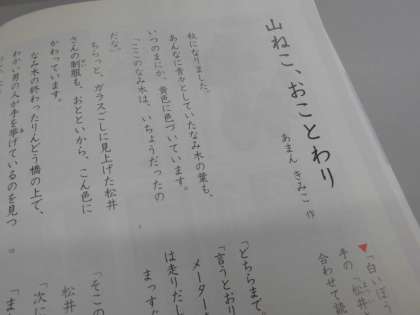 山ねこ、おことわり
あまん きみこ 作
秋になりました。
あんなに青々としていたなみ木の葉も、
いつのまにか、黄色に色づいています。
「ここのなみ木は、いちょうだったの
だな。」
ちらっと、ガラスごしに見上げた松井
さんの制服も、おとといから、こん色に
かわっています。
なみ木の終わったりんどう橋の上で、
わかい男の人が手を挙げているのを見つ
「どちらまで
「言うとおり
メーター
は走りだし
まっす
「そこの
松井
「次に
「ま
「白いぼう
手の「松井
合わせて読